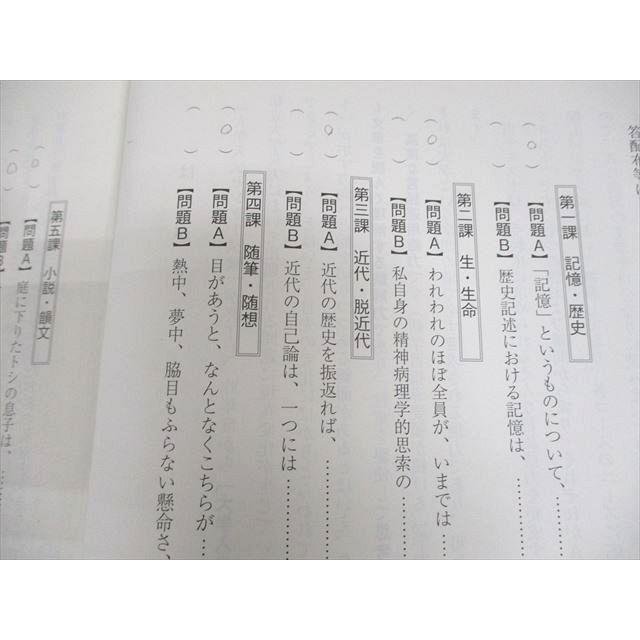 答配布等に
第一課 記憶・歴史
(○)【問題A】「記憶」というものについて、…………
( )【問題B】歴史記述における記憶は、…………
第二課 生・生命
(○)【問題A】われわれのほぼ全員が、いまでは…
( )【問題B】私自身の精神病理学的思索の…………
第三課 近代・脱近代
(○)【問題A】近代の歴史を振返れば、…………
( )【問題B】近代の自己論は、一つには…………
第四課 随筆・随想
(○)【問題A】目があうと、なんとなくこちらが…
( )【問題B】熱中、夢中、脇目もふらない懸命さ、
第五課 小説・韻文
(○)【問題A】庭に下りたトシの息子は、……
(○)【問題B】